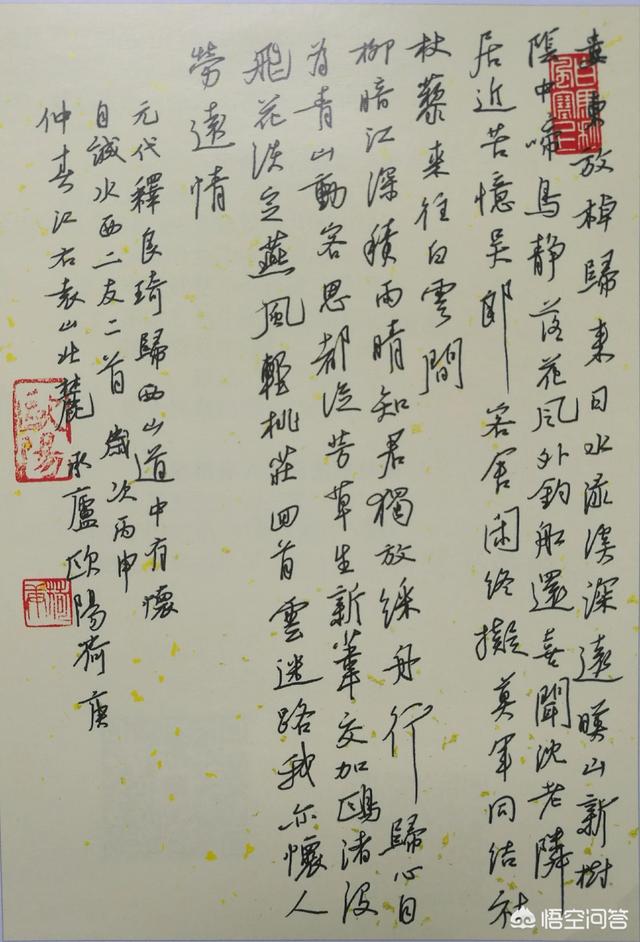 婁東放棹歸來日水添溪深遠暎山新樹
陰中啼鳥静落花風外釣船還喜聞沈老隣
居近苦憶吴郎客舍閑終擬莫年同结社
杖藜来往白雲間
柳暗江深積雨晴知君獨放綵舟行歸心日
為青山動客思都從芳草生新葦交加鷗渚没
飛花淡定燕風輕桃莊回首雲迷路我亦懷人
勞遠情
元代釋良琦歸西山道中有懷
自誠水西二友二首歲次丙申
仲春江右袁山北麓 廬歐陽荷庚
歐陽
荷庚
悟空问答